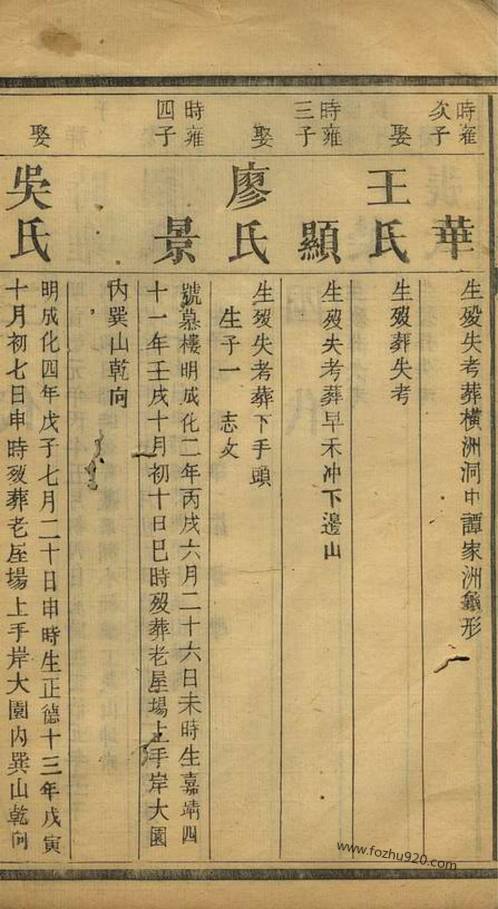 時雍
次子
華
生歿失考葬橫洲洞中譚家洲龜形
娶
王氏
生歿葬失考
時雍
三子
顯
生歿失考葬早禾冲下邊山
娶
廖氏
生歿失考葬下手頭
生子一 志文
時雍
四子
景
號慕樓明成化二年丙戌六月二十六日未時生嘉靖四
十一年壬戌十月初十日巳時歿葬老屋場上手岸大園
內巽山乾向
娶
吳氏
明成化四年戊子七月二十日申時生正德十三年戊寅
十月初七日申時歿葬老屋場上手岸大園內巽山乾向
www.fozhu920.com